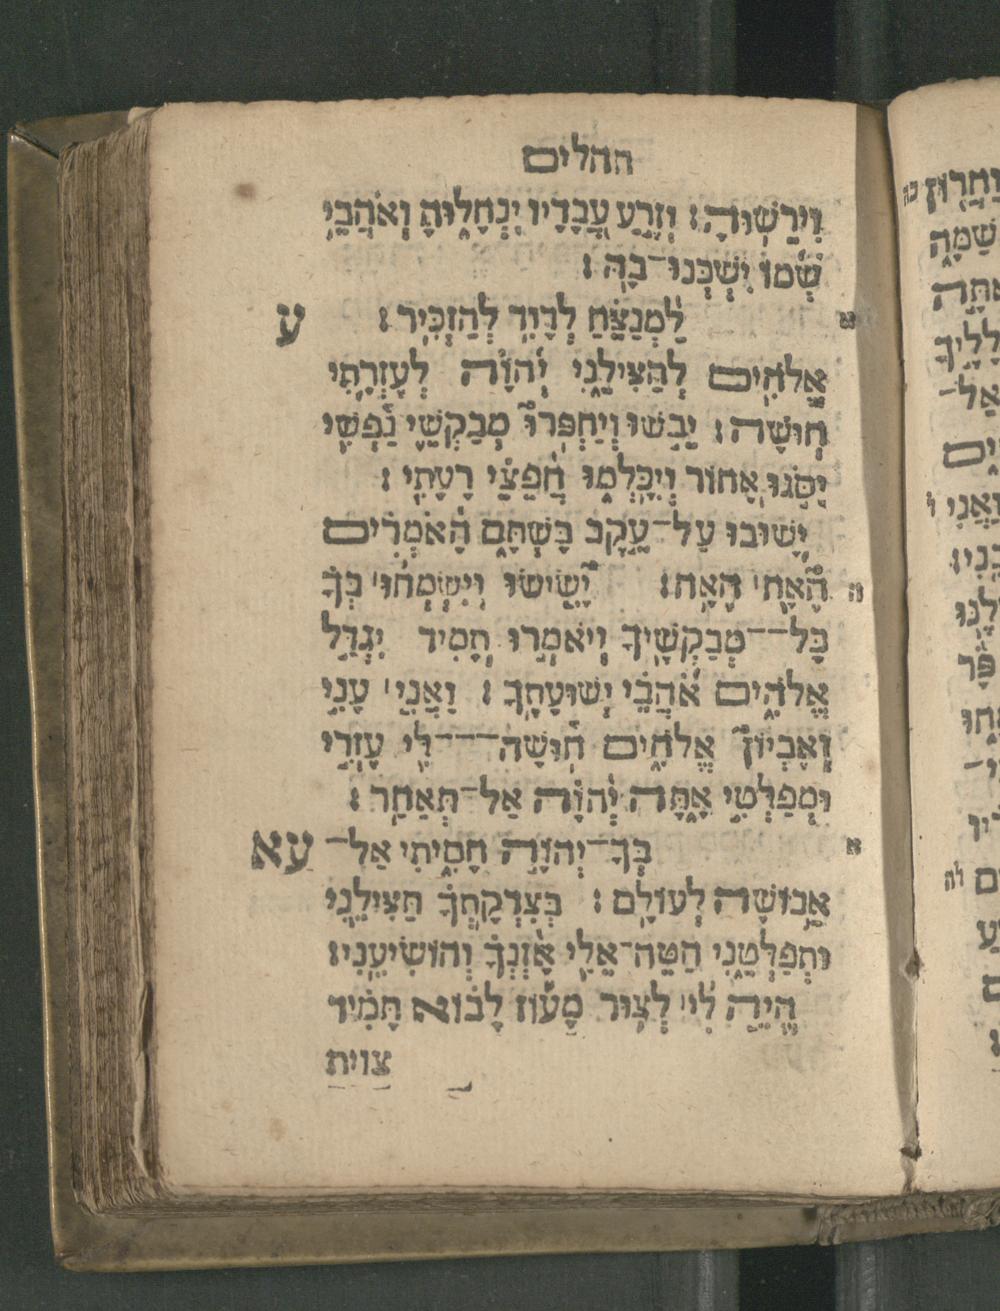 תהלים
וִירֵשׁוּהָ׃ וְזֶרַע עֲבָדָיו יִנְחָלוּהָ וְאֹהֲבֵי
שְׁמוֹ יִשְׁכְּנוּ־בָהּ׃
א לַמְנַצֵּחַ לְדָוִד לְהַזְכִּיר׃ ע
אֱלֹהִים לְהַצִּילֵנִי יְהוָה לְעֶזְרָתִי
חוּשָׁה׃ יֵבֹשׁוּ וְיַחְפְּרוּ מְבַקְשֵׁי נַפְשִׁי
יִסֹּגוּ אָחוֹר וְיִכָּלְמוּ חֲפֵצֵי רָעָתִי׃
יָשׁוּבוּ עַל־עֵקֶב בָּשְׁתָּם הָאֹמְרִים
ה הֶאָח׀ הֶאָח׃ יָשִׂישׂוּ וְיִשְׂמְחוּ׀ בְּךָ
כָּל־־מְבַקְשֶׁיךָ וְיֹאמְרוּ תָמִיד יִגְדַּל
אֱלֹהִים אֹהֲבֵי יְשׁוּעָתֶךָ׃ וַאֲנִי׀ עָנִי
וְאֶבְיוֹן אֱלֹהִים חוּשָׁה־־־־לִּי עֶזְרִי
וּמְפַלְטִי אַתָּה יְהוָה אַל־תְּאַחַר׃
א בְּךָ־יְהוָה חָסִיתִי אַל־ עא
אֵבוֹשָׁה לְעוֹלָם׃ בְּצִדְקָתְךָ תַּצִּילֵנִי
וּתְפַלְּטֵנִי הַטֵּה־אֵלַי אָזְנְךָ וְהוֹשִׁיעֵנִי׃
הֱיֵה לִי׀ לְצוּר מָעוֹז לָבוֹא תָּמִיד
צוית